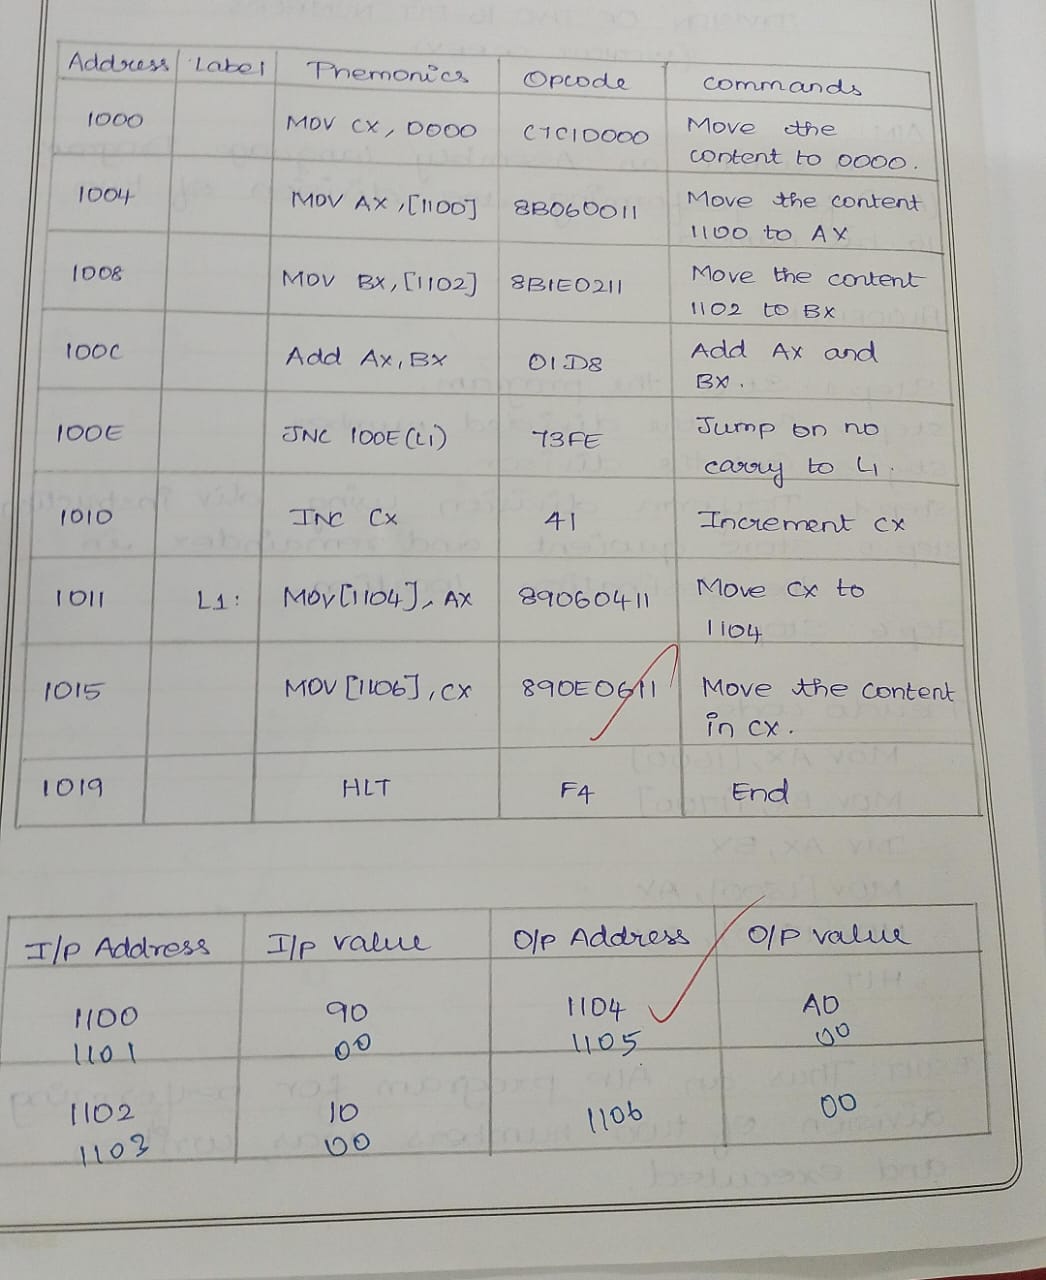 Address Label Pnemonics Opcode commands
1000 MOV CX, 0000 C7C10000 Move the
content to 0000.
1004 MOV AX, [1100] 8B060011 Move the content
1100 to AX
1008 MOV BX, [1102] 8B1E0211 Move the content
1102 to BX
100C Add AX, BX 01D8 Add AX and
BX.
100E JNC 100E (L1) 73FE Jump on no
carry to L1.
1010 INC CX 41 Increment CX
1011 L1: MOV [1104], AX 89060411 Move CX to
1104
1015 MOV [1106], CX 890E0611 Move the content
in CX.
1019 HLT F4 End
I/P Address I/P value O/P Address O/P value
1100 90 1104 A0
1101 00 1105 00
1102 10 1106 00
1103 00